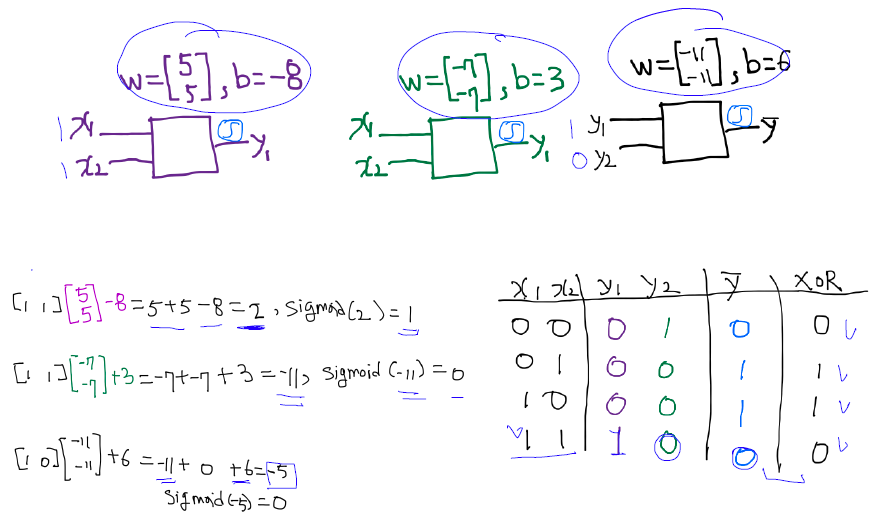 w=[5 5], b=-8
w=[-7 -7], b=3
w=[-11 -11], b=6
1 x1 S y1
1 x2
x1 S y1
x2
1 y1 S y̅
0 y2
[1 1][5 5]-8=5+5-8=2, sigmoid(2)=1
[1 1][-7 -7]+3=-7+-7+3=-11, sigmoid(-11)=0
[1 0][-11 -11]+6=-11+0+6=-5
sigmoid(-5)=0
x1 x2 y1 y2 y̅ XOR
0 0 0 1 0 0 v
0 1 0 0 1 1 v
1 0 0 0 1 1 v
v 1 1 1 0 0 0 v